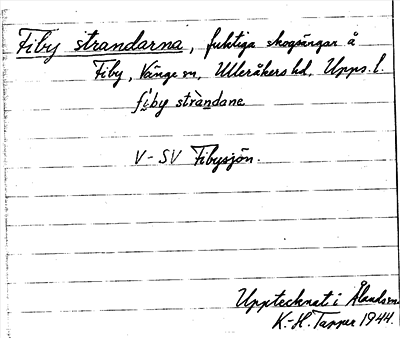 Fiby strandarna, fuktiga skogsängar å
Fiby, Vänge sn, Ulleråkers hd, Upps. l.
fìby stràndane
V-SV Fibysjön.
Upptecknat i Ålands sn.
K.-H. Tapper 1944.